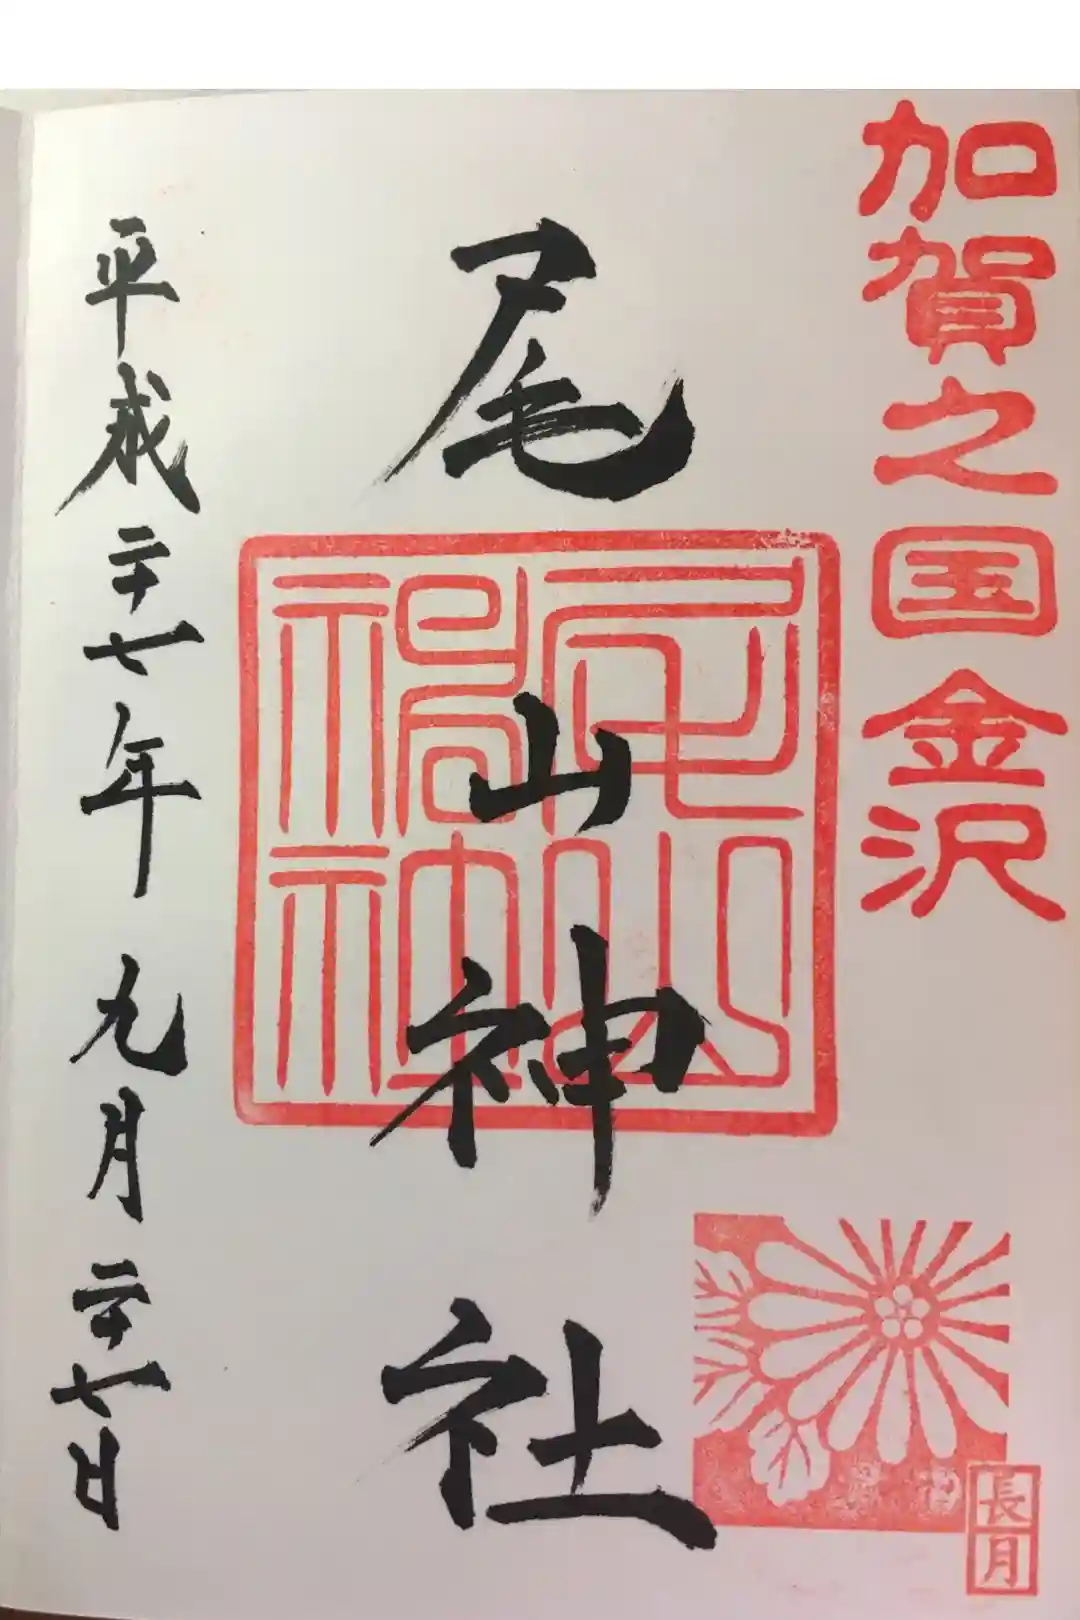 加賀之国金沢
尾山神社
尾山神社
平成二十七年九月二十七日
長月